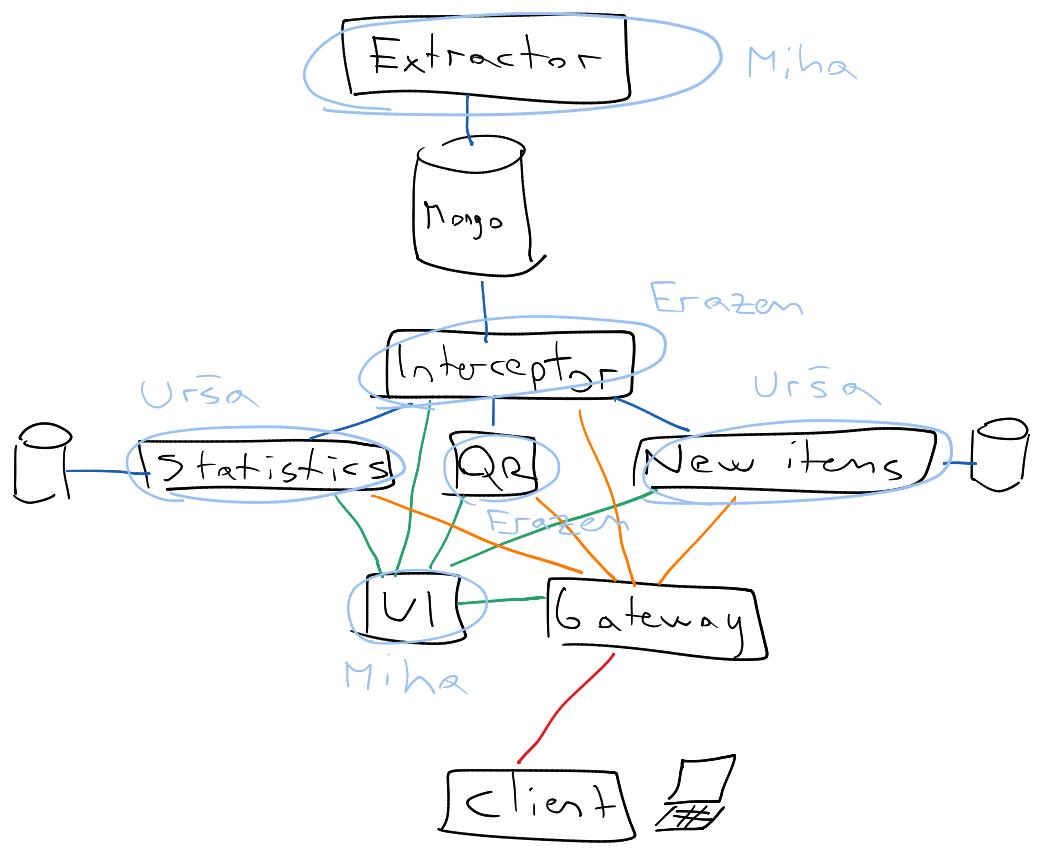 Extractor
Miha
Mongo
Erazem
Interceptor
Urša
Urša
Statistics
QR
New items
Erazem
UI
Gateway
Miha
Client